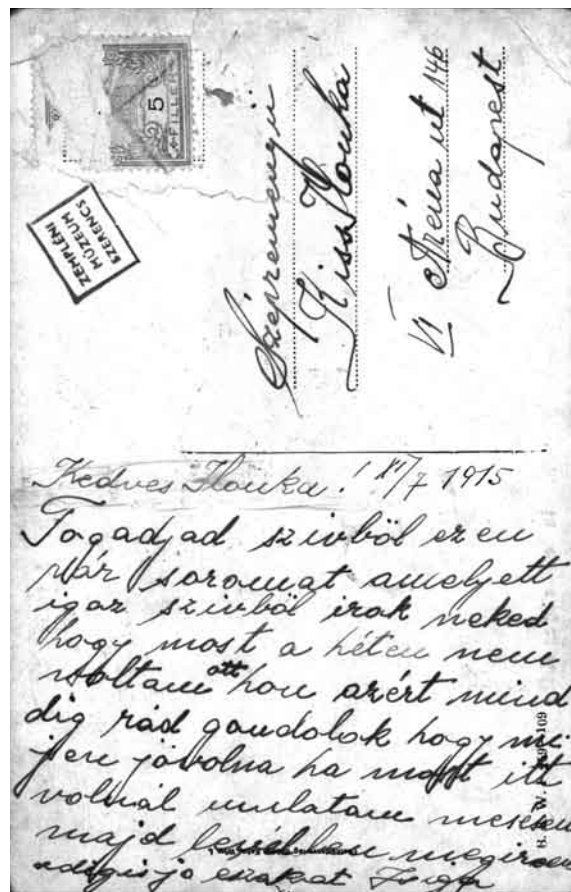 5
FILLER
ZEMPLÉNI
MÚZEUM
SZERENCS
Kiss Ilonka
VI Aréna ut 146
Budapest
Kedves Ilonka! XI/7 1915
Fogadjad szivből ezen
pár soromat amelyett
igaz szivből irok neked
hogy most a héten nem
voltam ott hon azért mind
dig rád gondolok hogy mi
jen jóvolna ha most itt
volnál mulatam
majd megirom
adigis jo